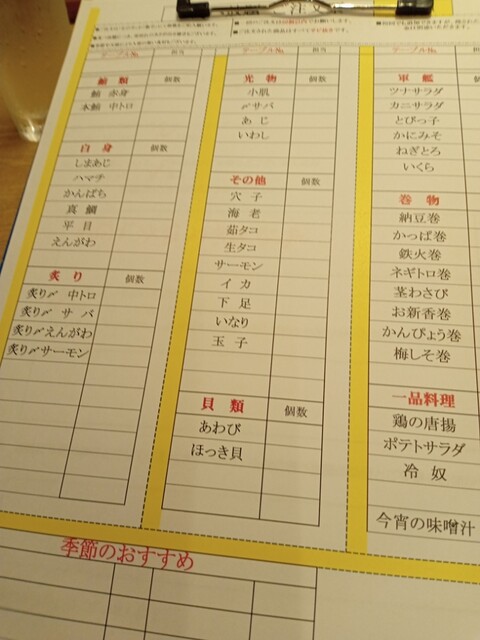 テーブル№ 担当
鮪類 個数
鮪 赤身
本鮪 中トロ
白身 個数
しまあじ
ハマチ
かんぱち
真鯛
平目
えんがわ
炙り 個数
炙り〆 中トロ
炙り〆 サバ
炙り〆えんがわ
炙り〆サーモン
テーブル№ 担当
光物 個数
小肌
〆サバ
あじ
いわし
その他 個数
穴子
海老
茹タコ
生タコ
サーモン
イカ
下足
いなり
玉子
貝類 個数
あわび
ほっき貝
テーブル№
軍艦
ツナサラダ
カニサラダ
とびっ子
かにみそ
ねぎとろ
いくら
巻物
納豆巻
かっぱ巻
鉄火巻
ネギトロ巻
茎わさび
お新香巻
かんぴょう巻
梅しそ巻
一品料理
鶏の唐揚
ポテトサラダ
冷奴
今宵の味噌汁
季節のおすすめ